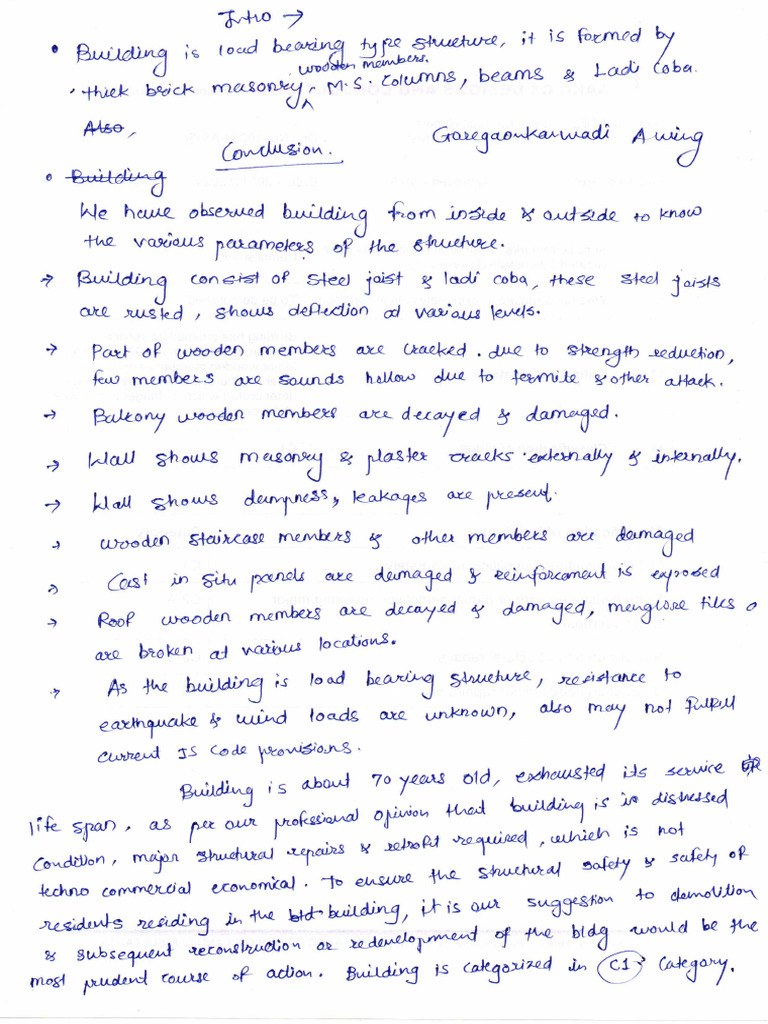 Intro →
• Building is load bearing type structure, it is formed by
wooden members.
• thick brick masonry, M.S. columns, beams & Ladi Coba.
Also,
Garegaonkarwadi A wing
Conclusion.
• Building
We have observed building from inside & outside to know
the various parameters of the structure.
→ Building consist of steel joist & ladi coba, these steel joists
are rusted, shows deflection at various levels.
→ Part of wooden members are cracked. due to strength reduction,
few members are sounds hollow due to termite & other attack.
→ Balcony wooden members are decayed & damaged.
→ Wall shows masonry & plaster cracks externally & internally.
→ Wall shows dampness, leakages are present.
→ Wooden staircase members & other members are damaged
→ Cast in situ panels are damaged & reinforcement is exposed
→ Roof wooden members are decayed & damaged, menglore tiles
are broken at various locations.
→ As the building is load bearing structure, resistance to
earthquake & wind loads are unknown, also may not fulfill
current IS Code provisions.
Building is about 70 years old, exhausted its service
life span, as per our professional opinion that building is in distressed
condition, major structural repairs & retrofit required, which is not
techno commercial economical. To ensure the structural safety & safety of
residents residing in the building, it is our suggestion to demolition
& subsequent reconstruction or redevelopment of the bldg would be the
most prudent course of action. Building is categorized in C1 Category.